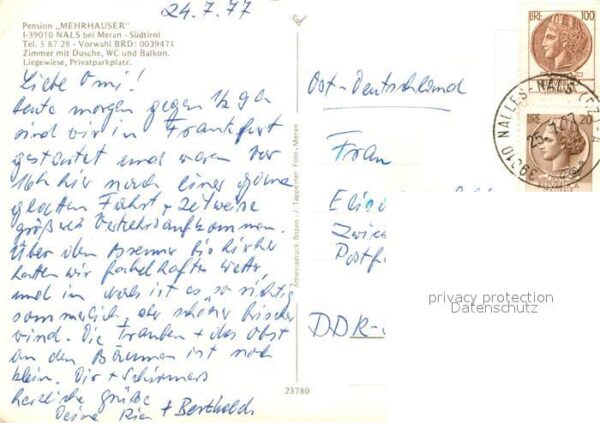 24.7.77
Pension „MEHRHAUSER"
I-39010 NALS bei Meran - Südtirol
Tel. 5 87 28 - Vorwahl BRD: 0039471
Zimmer mit Dusche, WC und Balkon.
Liegewiese, Privatparkplatz.
Liebe Omi!
heute morgen gegen
sind wir in Frankfurt
gestartet und waren vor
16h hier nach einer ganz
glatten Fahrt + zeitweise
größerem Verkehrsaufkommen.
Über den Brenner bis hierher
hatten wir fabelhaftes Wetter,
und in Nals ist es so richtig
sommerlich, aber schöner frischer
Wind. Die Trauben + das Obst
an den Bäumen ist noch
klein. Dir + Schirmers
herzliche Grüße
Deine + Berthold
Athesiadruck Bozen - J. Tappeiner Foto, Meran
23780
Ost-Deutschland
Frau
Zwic
Postf
DDR-
LIRE 100
LIRE 20
39010 NALLES-NALS (BZ)
25.7.77
privacy protection
Datenschutz